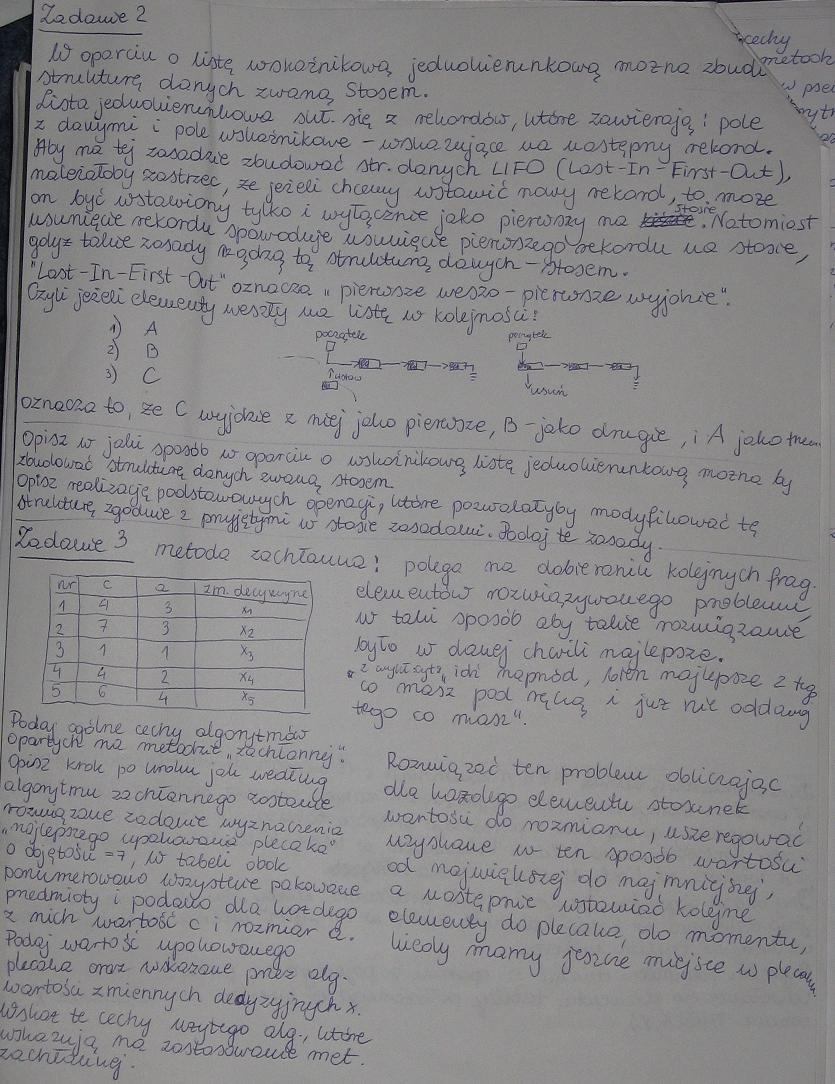 Zadanie 2
W oparciu o listę wskaźnikową jednokierunkową można zbud
strukturę danych zwaną Stosem.
Lista jednokierunkowa skł. się z rekordów, które zawierają: pole
z danymi i pole wskaźnikowe - wskazujące na następny rekord.
Aby na tej zasadzie zbudować str. danych LIFO (Last-In-First-Out),
należałoby zastrzec, że jeżeli chcemy wstawić nowy rekord, to może
on być wstawiony tylko i wyłącznie jako pierwszy na stosie. Natomiast
usunięcie rekordu spowoduje usunięcie pierwszego rekordu na stosie,
gdyż takie zasady rządzą tą strukturą danych - stosem.
"Last-In-First-Out" oznacza "pierwsze weszo - pierwsze wyjdzie".
Czyli jeżeli elementy weszły na listę w kolejności:
1) A
2) B
3) C
początek
wstaw
początek
usuń
oznacza to, że C wyjdzie z niej jako pierwsze, B - jako drugie, i A jako
Opisz w jaki sposób w oparciu o wskaźnikową listę jednokierunkową można by
zbudować strukturę danych zwaną stosem
Opisz realizację podstawowych operacji, które pozwalałyby modyfikować tę
strukturę zgodnie z przyjętymi w stosie zasadami. Podaj te zasady.
Zadanie 3
metoda zachłanna: polega na dobieraniu kolejnych frag.
elementów rozwiązywanego problemu
w taki sposób aby takie rozwiązanie
było w danej chwili najlepsze.
"idź naprzód, bierz najlepsze z tego
co masz pod ręką i już nie oddawaj
tego co masz".
nr c a zm. decyzyjne
1 4 3 x1
2 7 3 x2
3 1 1 x3
4 4 2 x4
5 6 4 x5
Podaj ogólne cechy algorytmów
opartych na metodzie "zachłannej".
Opisz krok po kroku jak według
algorytmu zachłannego zostanie
rozwiązane zadanie wyznaczenia
"najlepszego upakowania plecaka"
o objętości =7, w tabeli obok
ponumerowano wszystkie pakowane
przedmioty i podano dla każdego
z nich wartość c i rozmiar a.
Podaj wartość upakowanego
plecaka oraz wskazane przez alg.
wartości zmiennych decyzyjnych x.
Wskaż te cechy użytego alg., które
wskazują na zastosowanie met.
zachłannej.
Rozwiązać ten problem obliczając
dla każdego elementu stosunek
wartości do rozmiaru, uszeregować
uzyskane w ten sposób wartości
od największej do najmniejszej,
a następnie wstawiać kolejne
elementy do plecaka, do momentu,
kiedy mamy jeszcze miejsce w plecaku.
cechy
metod